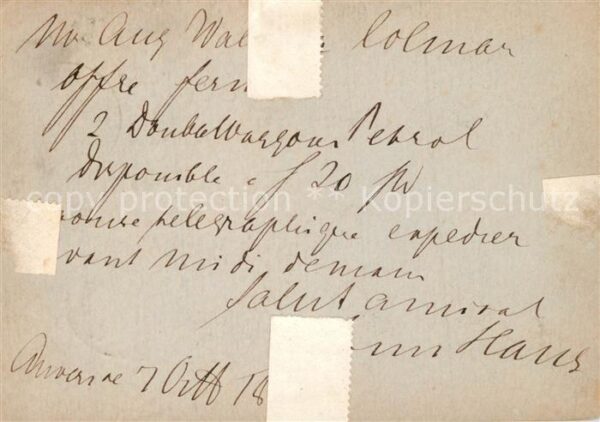 Mr Aug Wal Colmar
offre ferm
2 Doubelwaggons Petrol
disponible a f 20
telegraphique expedier
vant midi demain
Salut amical
Haus
Anvers 7 Octb 18
copy protection Kopierschutz